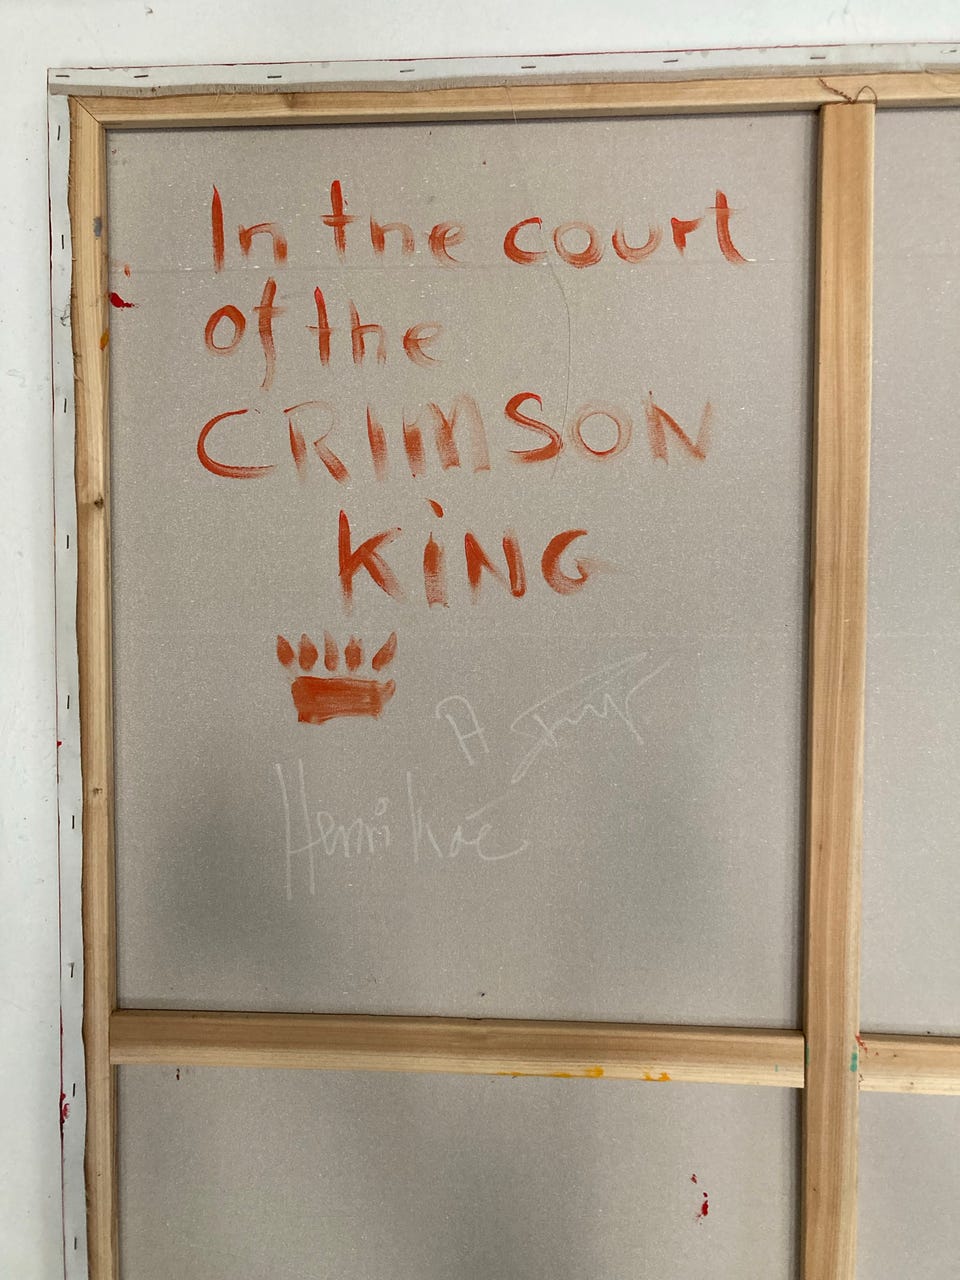 In the court
of the
CRIMSON
KiNG
A
Henri